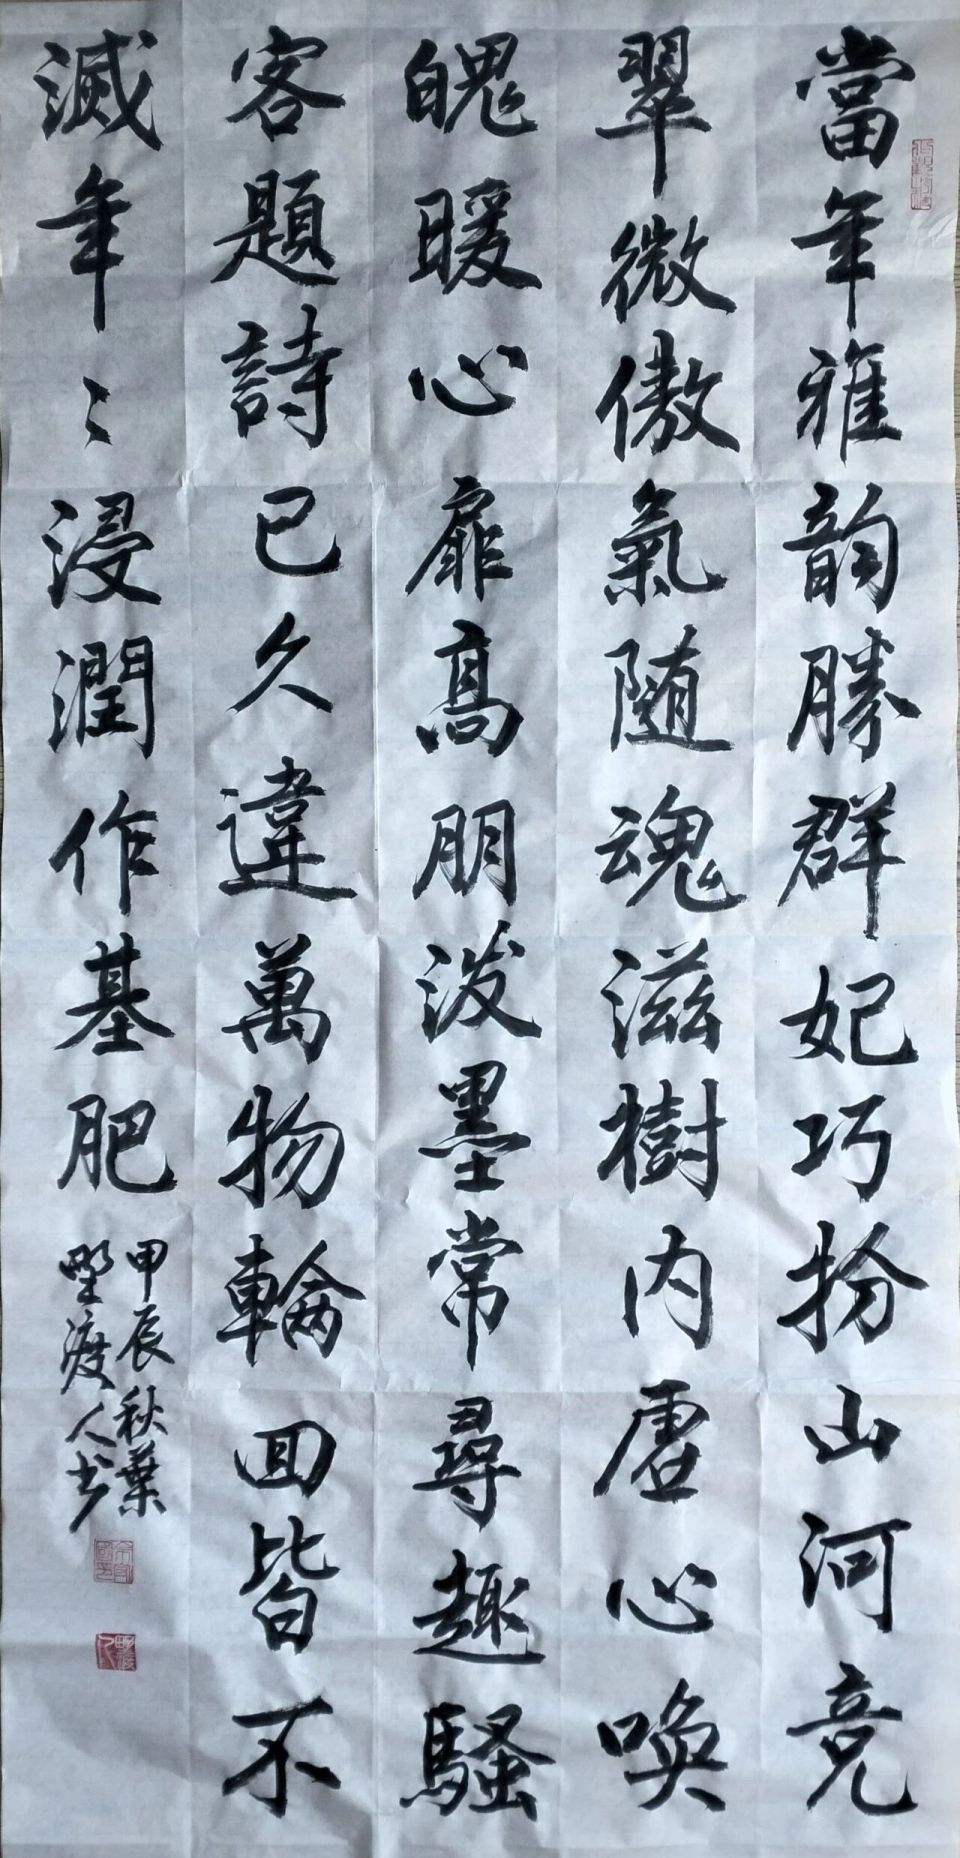 當年雅韵勝群妃巧扮山河竞
翠微傲氣随魂滋樹内虚心喚
魄暖心扉高朋泼墨常尋趣騷
客題詩已久違萬物輪回皆不
滅年〻浸潤作基肥
甲辰秋葉
野渡人书